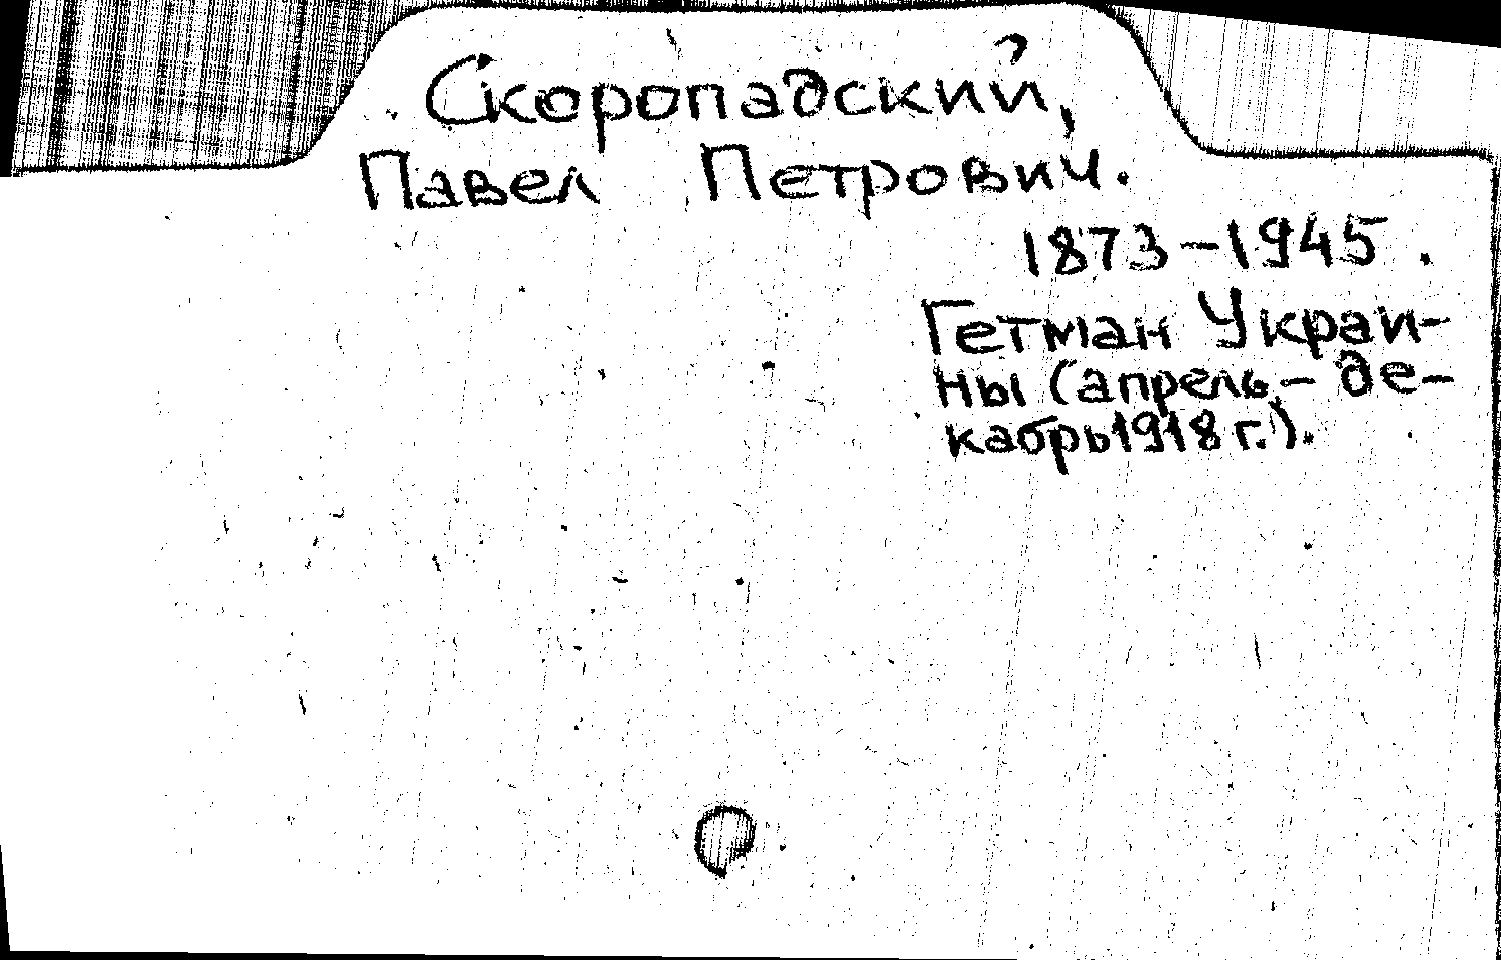 Скоропадский,
Павел Петрович.
1873-1945.
Гетман Украи-
ны (апрель - де-
кабрь 1918 г.).